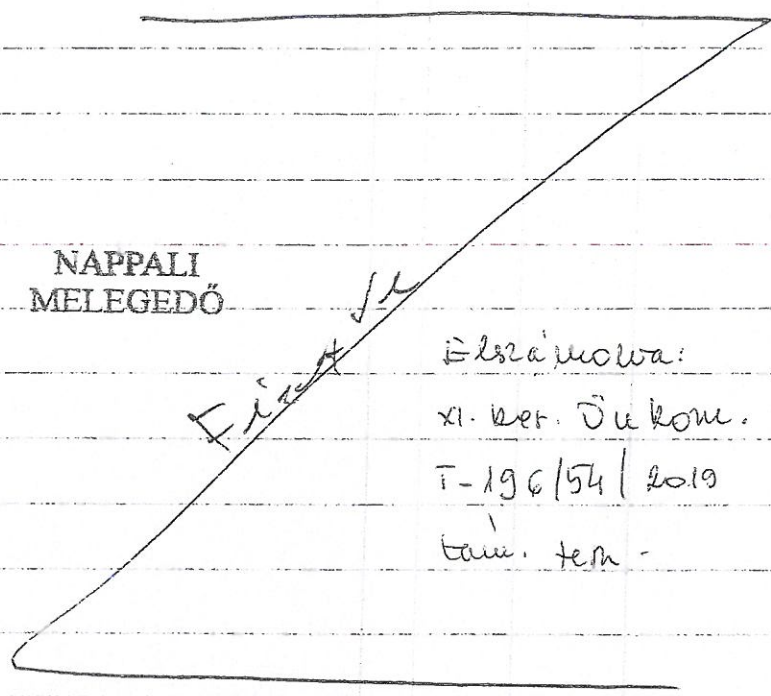 NAPPALI
MELEGEDŐ
Fizetve
Elszámolva:
XI. ker. Önkom.
T-196/54/2019
tám. terh -